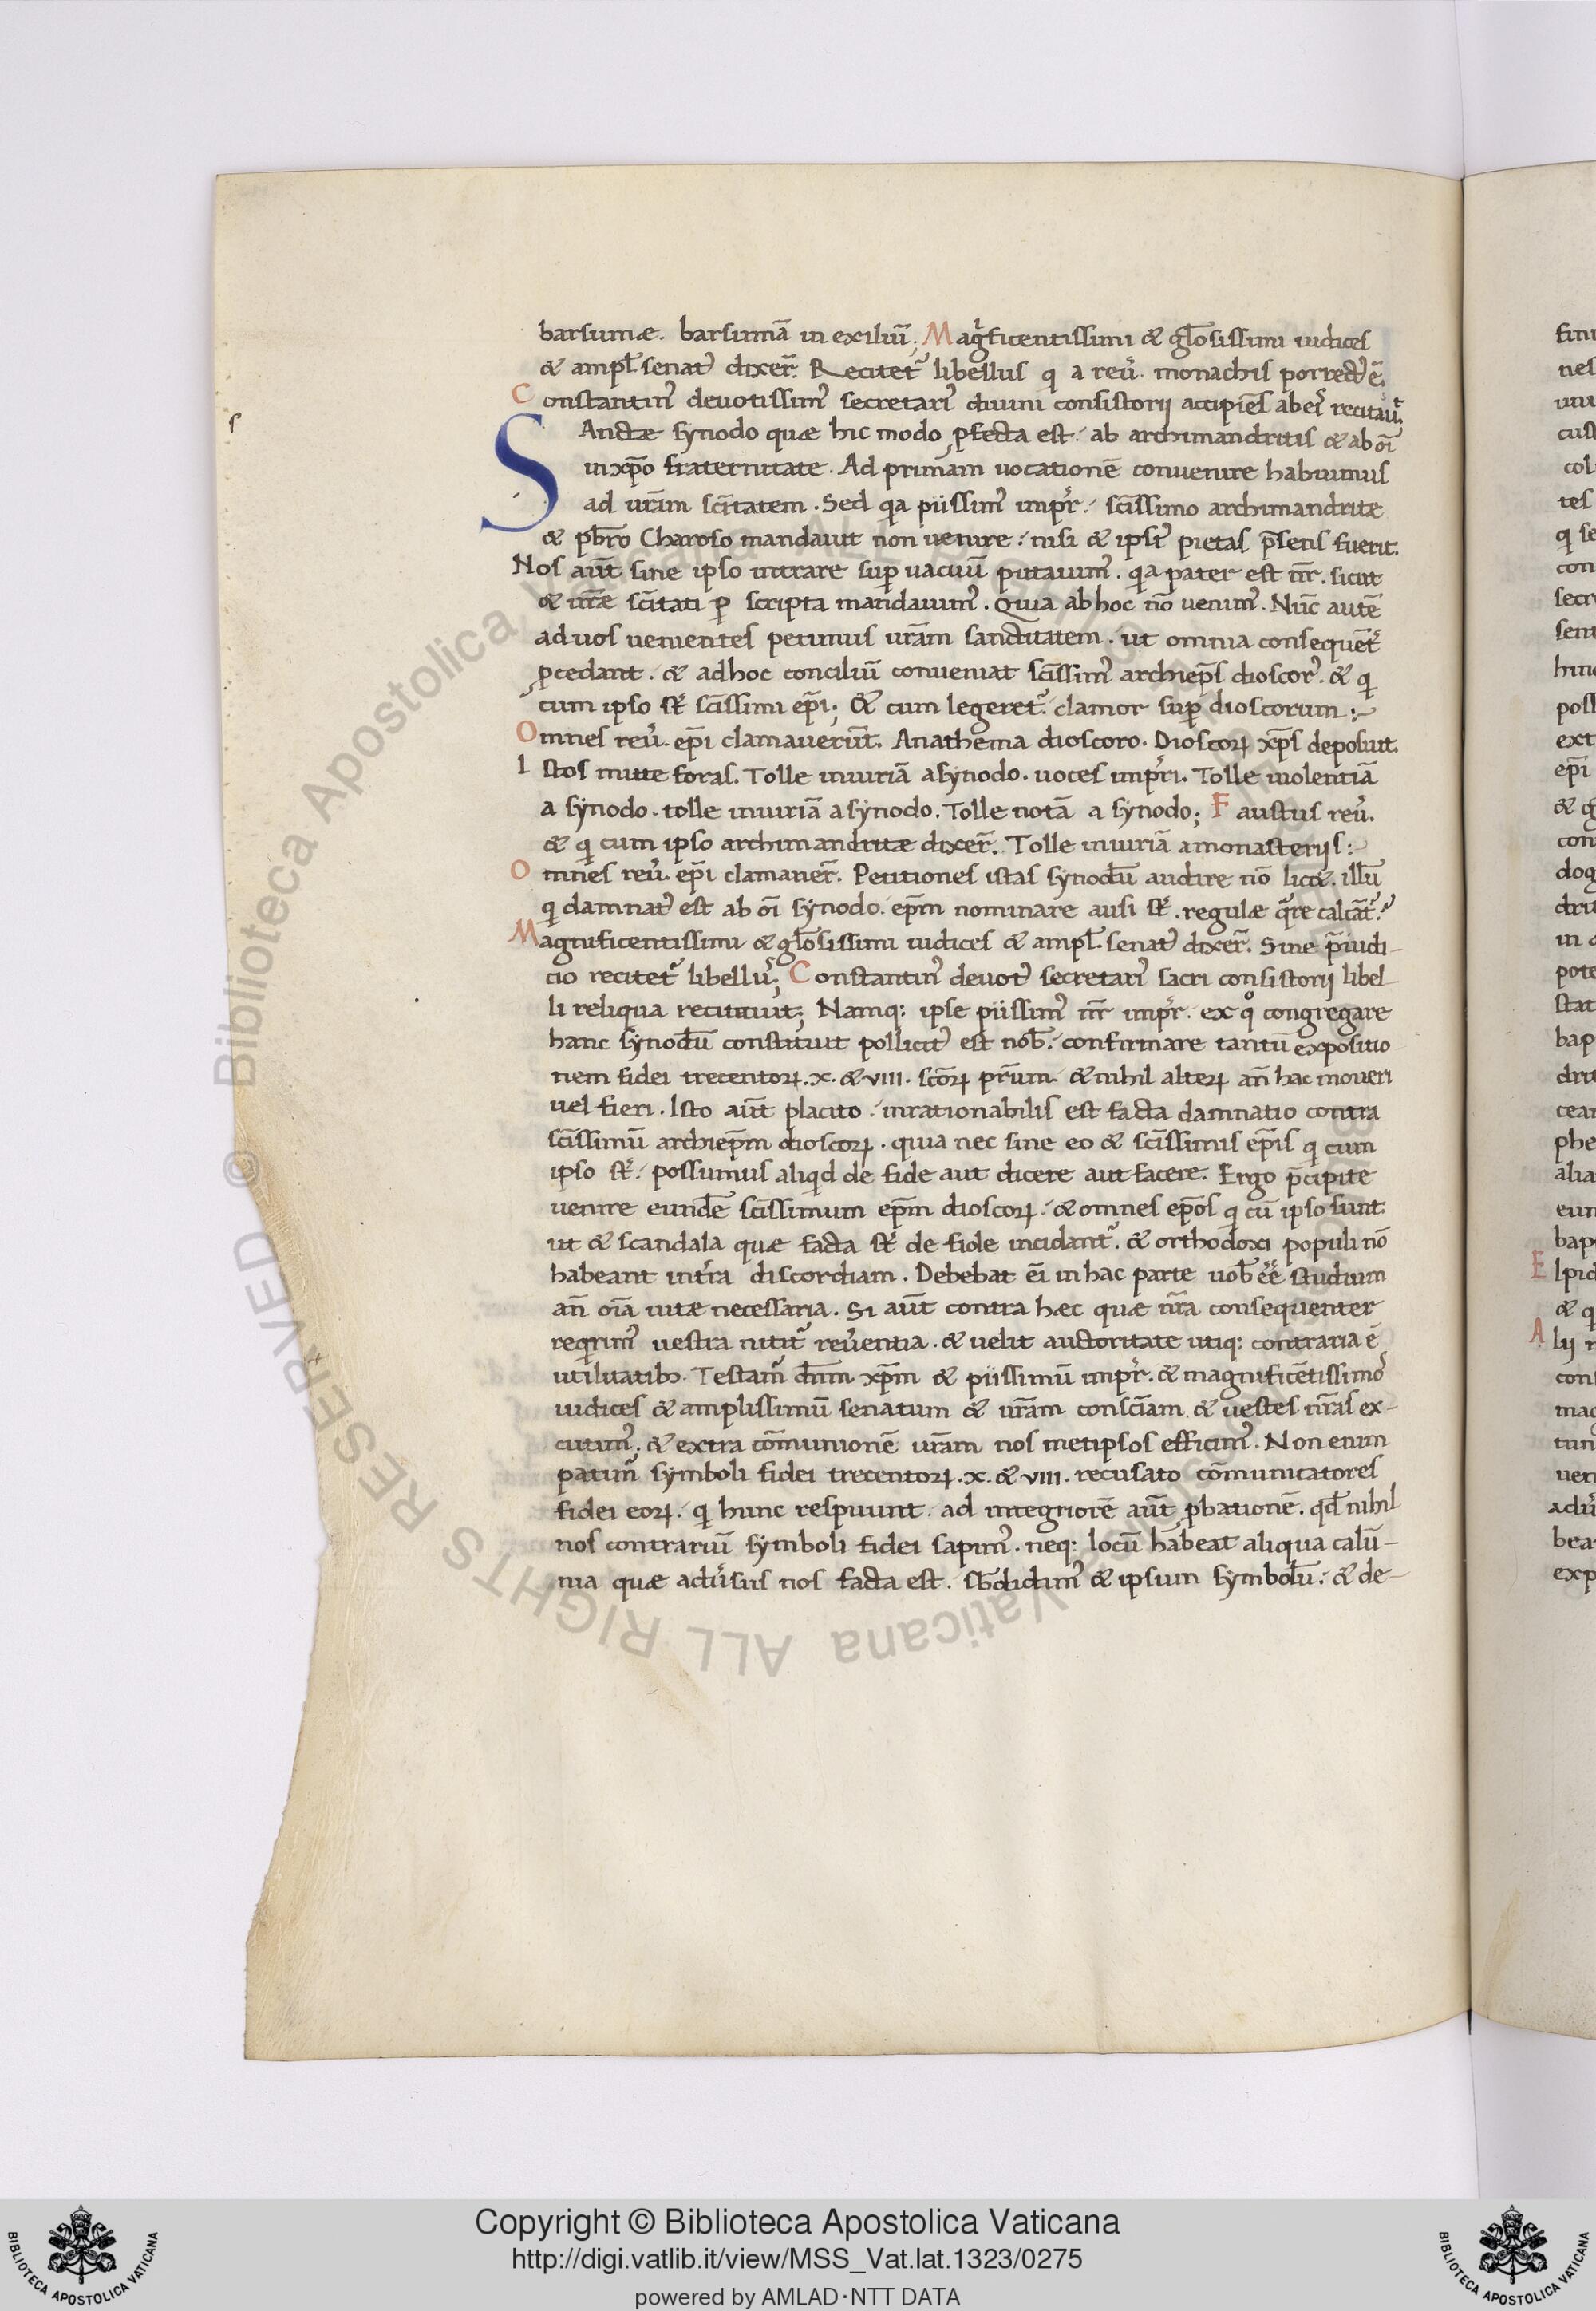 barsumæ. barsumā in exiliū; Magͥficentissimi & gl̄osissimi iudices
& ampl̄. senat᾽ dixer̄. Recitet᷑ libellus q̨ a reu᷑. monachis porrect᾽ ē.
Constantin᾽ deuotissim᾽ secretari᾽ diuini consistorij accipiēs ab ei᾽ recitau᷑;
SAnctæ synodo quæ hic modo ꝓfecta est. ab archimandritis & ab oī
in xp̄o fraternitate. Ad primam uocationē conuenire habuimus
ad ur̄am sc̄itatem. Sed qa piissim᾽ imp᷑r. sc̄issimo archimandritæ
& pb̄ro Charoso mandauit non uenire. nisi & ipsi᾽ pietas p̄sens fuerit.
Nos aūt sine ipso intrare suꝑ uacuū putauim᾽. qa pater est nr̄. sicut
& ur̄æ sc̄itati ꝑ scripta mandauim᾽. Quia ab hoc nō uenim᾽. Nūc autē
ad uos uenientes petimus ur̄am sanctitatem. ut omnia consequēt᷑
ꝓcedant. & ad hoc conciliū conueniat sc̄issim᾽ archiep̄s dioscor᾽. & q̨
cum ipso st᷑ sc̄issimi ep̄i; & cum legeret᷑. clamor suꝑ dioscorum:
Omnes reu᷑. ep̄i clamauerūt. Anathema dioscoro. Dioscoꝝ xp̄s deposuit.
Istos mitte foras. Tolle iniuriā a synodo. uoces imp᷑ri. Tolle uiolentiā
a synodo. tolle iniuriā a synodo. Tolle notā a synodo; Faustus reu᷑.
& q̨ cum ipso archimandritæ dixer̄. Tolle iniuriā a monasterijs:
Omnes reu᷑. ep̄i clamauer̄. Petitiones istas synodū audire nō lic&. illū
q̨ damnat᾽ est ab oī synodo. ep̄m nominare ausi st᷑. regulæ qͣre calcāt᷑?
Magnificentissimi & gl̄osissimi iudices & ampl̄. senat᾽ dixer̄. Sine p̄iudi-
cio recitet᷑ libellus; Constantin᾽ deuot᾽ secretari᾽ sacri consistorij libel-
li reliqua recitauit; Namq: ipse piissim᾽ nr̄ imp᷑r. ex qͦ congregare
hanc synodū constituit pollicit᾽ est nob̄. confirmare tantū expositio
nem fidei trecentoꝝ. x. & VIII. sc̄oꝝ pr̄um. & nihil alteꝝ an̄ hac moueri
uel fieri. Isto aūt placito. inrationabilis est facta damnatio contra
sc̄issimū archiep̄m dioscoꝝ. quia nec sine eo & sc̄issimis ep̄is q̨ cum
ipso st᷑. possumus aliqd de fide aut dicere aut facere. Ergo p̄cipite
uenire eundē sc̄issimum ep̄m dioscoꝝ. & omnes ep̄os q̨ cū ipso sunt.
ut & scandala quæ facta st᷑ de fide incidant᷑. & orthodoxi populi nō
habeant int᷑ra discordiam. Debebat ēi in hac parte uob̄ eē᷑ studium
an̄ oīa uitæ necessaria. Si aūt contra hæc quæ nr̄a consequenter
reqrim᾽ uestra nitit᷑ reu᷑entia. & uelut auctoritate utiq: contraria ē
utilitatibꝫ. Testam᾽ dn̄m xp̄m & piissimū imp᷑r. & magnificētissimo᾽
iudices & amplissimū senatum & ur̄am consc̄iam. & uestes nr̄as ex-
cutim᾽. & extra cōmunionē ur̄am nos metipsos efficim᾽. Non enim
patim᾽ symboli fidei trecentoꝝ. x. & VIII. recusato cōmunicatores
fidei eoꝝ. q̨ hunc respuunt. ad integriorē aūt ꝓbationē. qd̄ nihil
nos contrariū symboli fidei sapim᾽. neq: locū habeat aliqua calū-
nia quæ adu᷑sus nos facta est. sb̄didim᾽ & ipsum symbolū. & de-
© Biblioteca Apostolica Vaticana ALL RIGHTS RESERVED
Copyright © Biblioteca Apostolica Vaticana
http://digi.vatlib.it/view/MSS_Vat.lat.1323/0275
powered by AMLAD·NTT DATA
BIBLIOTECA APOSTOLICA VATICANA
BIBLIOTECA APOSTOLICA VATICANA